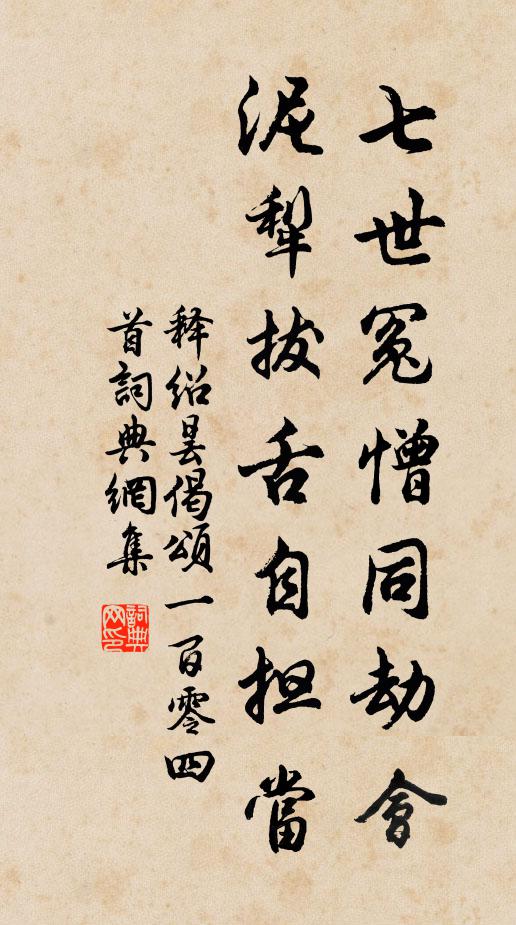 七世冤憎同劫會
泥犁拔舌自担當
释绍昙偈頌一百零四
首詞典網集
詞典网印